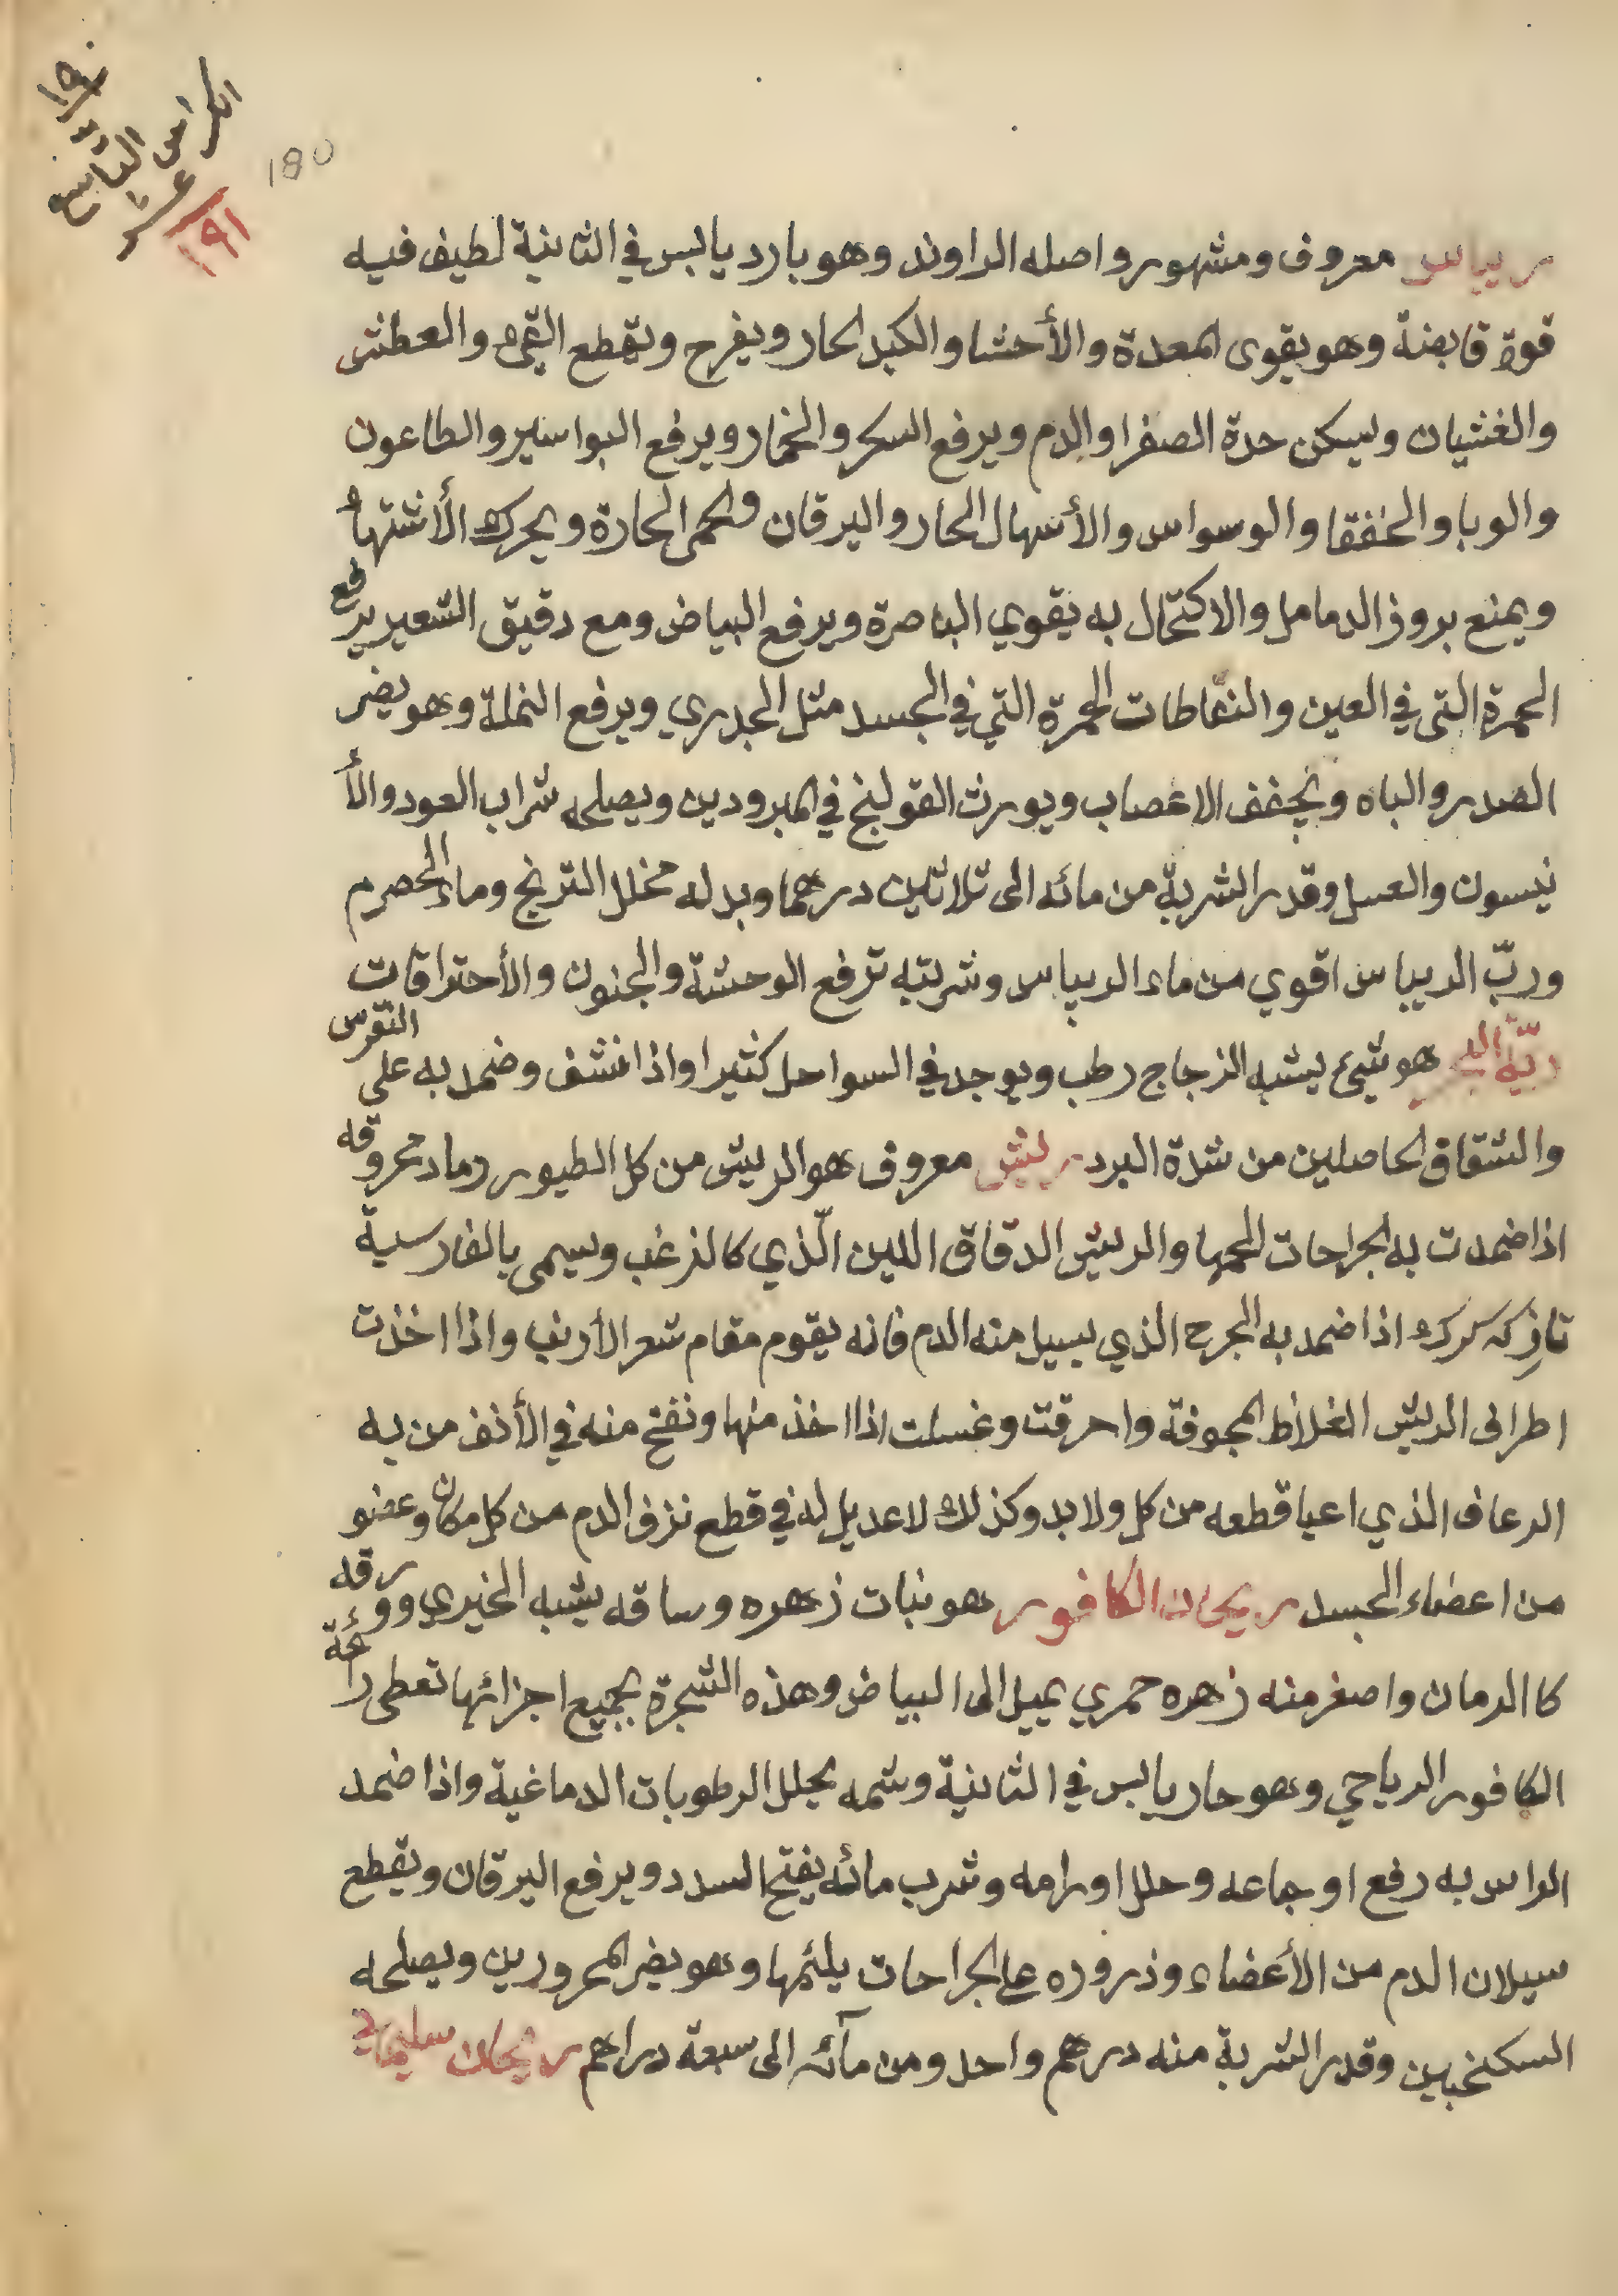 ١٩٠
الكراس التاسع
عشر
١٩١
180
ريباس معروف ومشهور واصله الراوند وهو بارد يابس في الثانية لطيف فيه
قوة قابضة وهو يقوى المعدة والأحشا والكبد الحار ويفرح ويقطع القيء والعطش
والغشيان ويسكن حدة الصفرا والدم ويرفع السكر والخمار ويرفع البواسير والطاعون
والوبا والخفقا والوسواس والأسهال الحار واليرقان والحمى الحارة ويحرك الأشتهاء
ويمنع بروز الدمامل والاكتحال به يقوي الباصرة ويرفع البياض ومع دقيق الشعير يرفع
الحمرة التى في العين والنفاطات الحمرة التي في الجسد مثل الجدري ويرفع النملة وهو يضر
الصدر والباه ويجفف الاعصاب ويورث القولنج في المبرودين ويصلحه شراب العود والأ
نيسون والعسل وقدر الشربة من مائه الى ثلاثين درهما وبدله مخلل الترنج وماء الحصرم
وربّ الريباس اقوي من ماء الريباس وشربته ترفع الوحشة والجنون والأحتراقات
ريّة البحر هو شيئ يشبه الزجاج رطب ويوجد في السواحل كثيرا واذا نشف وضمد به على النقرس
والشقاق الحاصلين من شدة البرد ريش معروف هو الريش من كل الطيور رماد محروقه
اذا ضمدت به الجراحات الحمها والريش الدقاق اللين الّذي كالزغب ويسمى بالفارسية
تازكه كرك اذا ضمد به الجرح الذي يسيل منه الدم فانه يقوم مقام شعر الأرنب واذا اخذت
اطراف الريش الغلاظ المجوفة واحرقت وغسلت اذا اخذ منها ونفخ منه في الأنف من به
الرعاف الذي اعيا قطعه من كل ولا بد وكذلك لا عديل له في قطع نزف الدم من كل مكان وعضو
من اعضاء الجسد ريحان الكافور هو نبات زهره وساقه يشبه الخيري وورقه
كا الرمان واصغر منه زهره حمري يميل الى البياض وهذه الشجرة بجميع اجزائها تعطى رائحة
الكافور الرياحي وهو حار يابس في الثانية وشمه يحلل الرطوبات الدماغية واذا ضمد
الراس به رفع اوجاعه وحلل اورامه وشرب مائه يفتح السدد ويرفع اليرقان ويقطع
سيلان الدم من الأعضاء وذروره على الجراحات يلئمها وهو يضر المحرورين ويصلحه
السكنجبين وقدر الشربة منه درهم واحد ومن مآئه الى سبعة دراهم ريحان سليماني